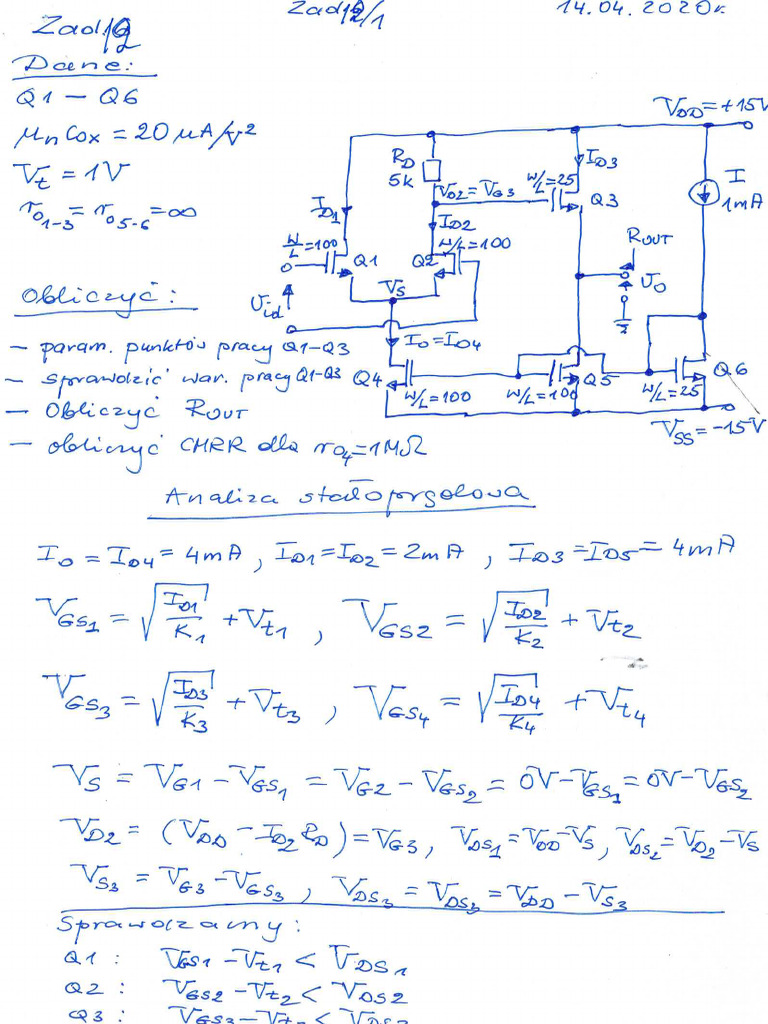 Zad 12/1
14.04.2020r.
Zad. 12
Dane:
Q1 – Q6
μnCox = 20 μA/V²
Vt = 1V
ro1-3 = ro5-6 = ∞
VDD = +15V
RD
5k
VD2 = VG3
W/L = 25
ID3
Q3
I
1mA
ID1
ID2
W/L = 100
Q1
Q2
W/L = 100
ROUT
Vs
Uo
Uid
Io = ID4
Q4
Q5
Q6
W/L = 100
W/L = 100
W/L = 25
VSS = -15V
Obliczyć:
– param. punktów pracy Q1-Q3
– sprawdzić war. pracy Q1-Q3
– Obliczyć ROUT
– obliczyć CMRR dla ro4 = 1MΩ
Analiza stałoprądowa
Io = ID4 = 4mA, ID1 = ID2 = 2mA, ID3 = ID5 = 4mA
VGS1 = √(ID1/K1) + Vt1, VGS2 = √(ID2/K2) + Vt2
VGS3 = √(ID3/K3) + Vt3, VGS4 = √(ID4/K4) + Vt4
VS = VG1 – VGS1 = VG2 – VGS2 = 0V – VGS1 = 0V – VGS2
VD2 = (VDD – ID2 RD) = VG3, VDS1 = VDD – VS, VDS2 = VD2 – VS
VS3 = VG3 – VGS3, VDS3 = VDS3 = VDD – VS3
Sprawdzamy:
Q1: VGS1 – Vt1 < VDS1
Q2: VGS2 – Vt2 < VDS2
Q3: VGS3 – Vt3 < VDS3